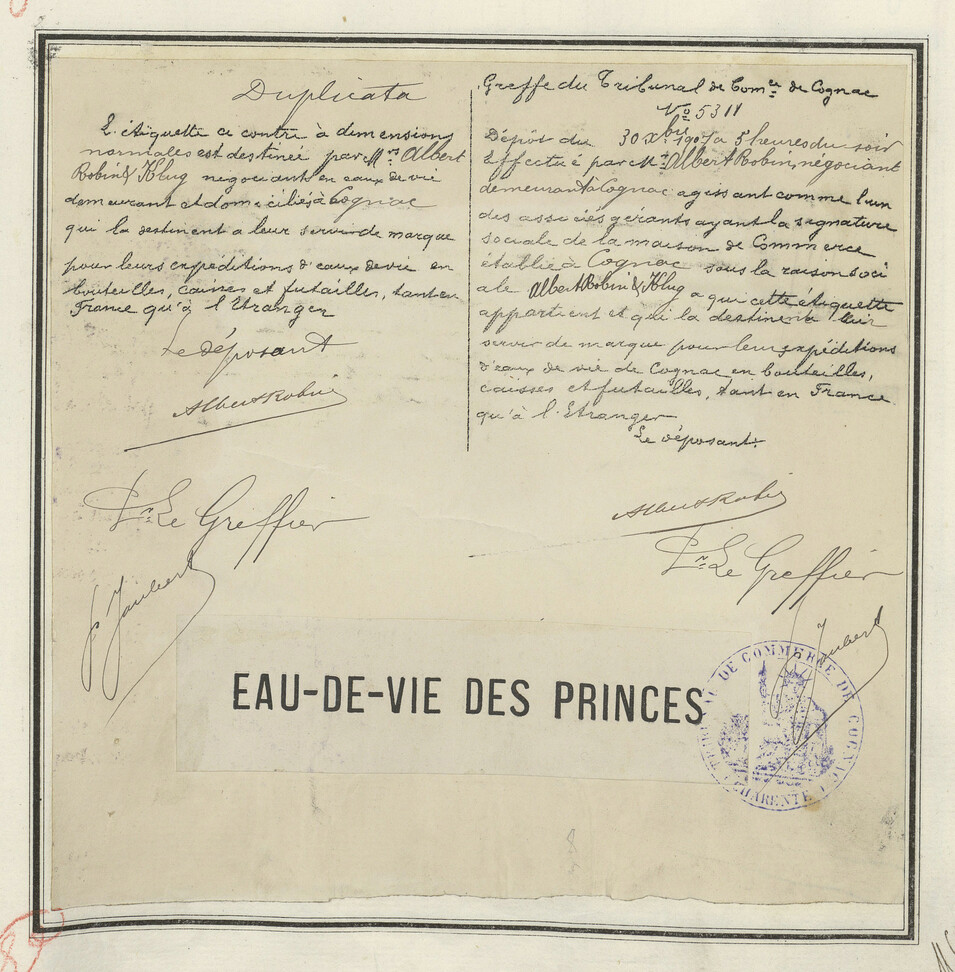 Duplicata
L'étiquette ci contre à dimensions
normales est destinée par Mrs Albert
Robin & Klug négociants en eaux de vie
demeurant et domiciliés à Cognac
qui la destinent a leur servir de marque
pour leurs expéditions d'eaux de vie en
bouteilles, caisses et futailles, tant en
France qu'à l'Etranger
Le déposant
Albert Robin
Pr. Le Greffier
Joubert
Greffe du Tribunal de Comce de Cognac
No 5311
Dépôt du 30 Xbre 1907 a 5 heures du soir
Effectué par Mr Albert Robin, négociant
demeurant à Cognac agissant comme l'un
des associés gérants ayant la signature
sociale de la maison de Commerce
établie à Cognac sous la raison soci
ale Albert Robin & Klug a qui cette étiquette
appartient et qui la destine a lui
servir de marque pour leurs expéditions
d'eaux de vie de Cognac en bouteilles,
caisses et futailles, tant en France
qu'à l'Etranger
Le déposant
Albert Robin
Pr. Le Greffier
Joubert
EAU-DE-VIE DES PRINCES
TRIBUNAL DE COMMERCE DE COGNAC
CHARENTE